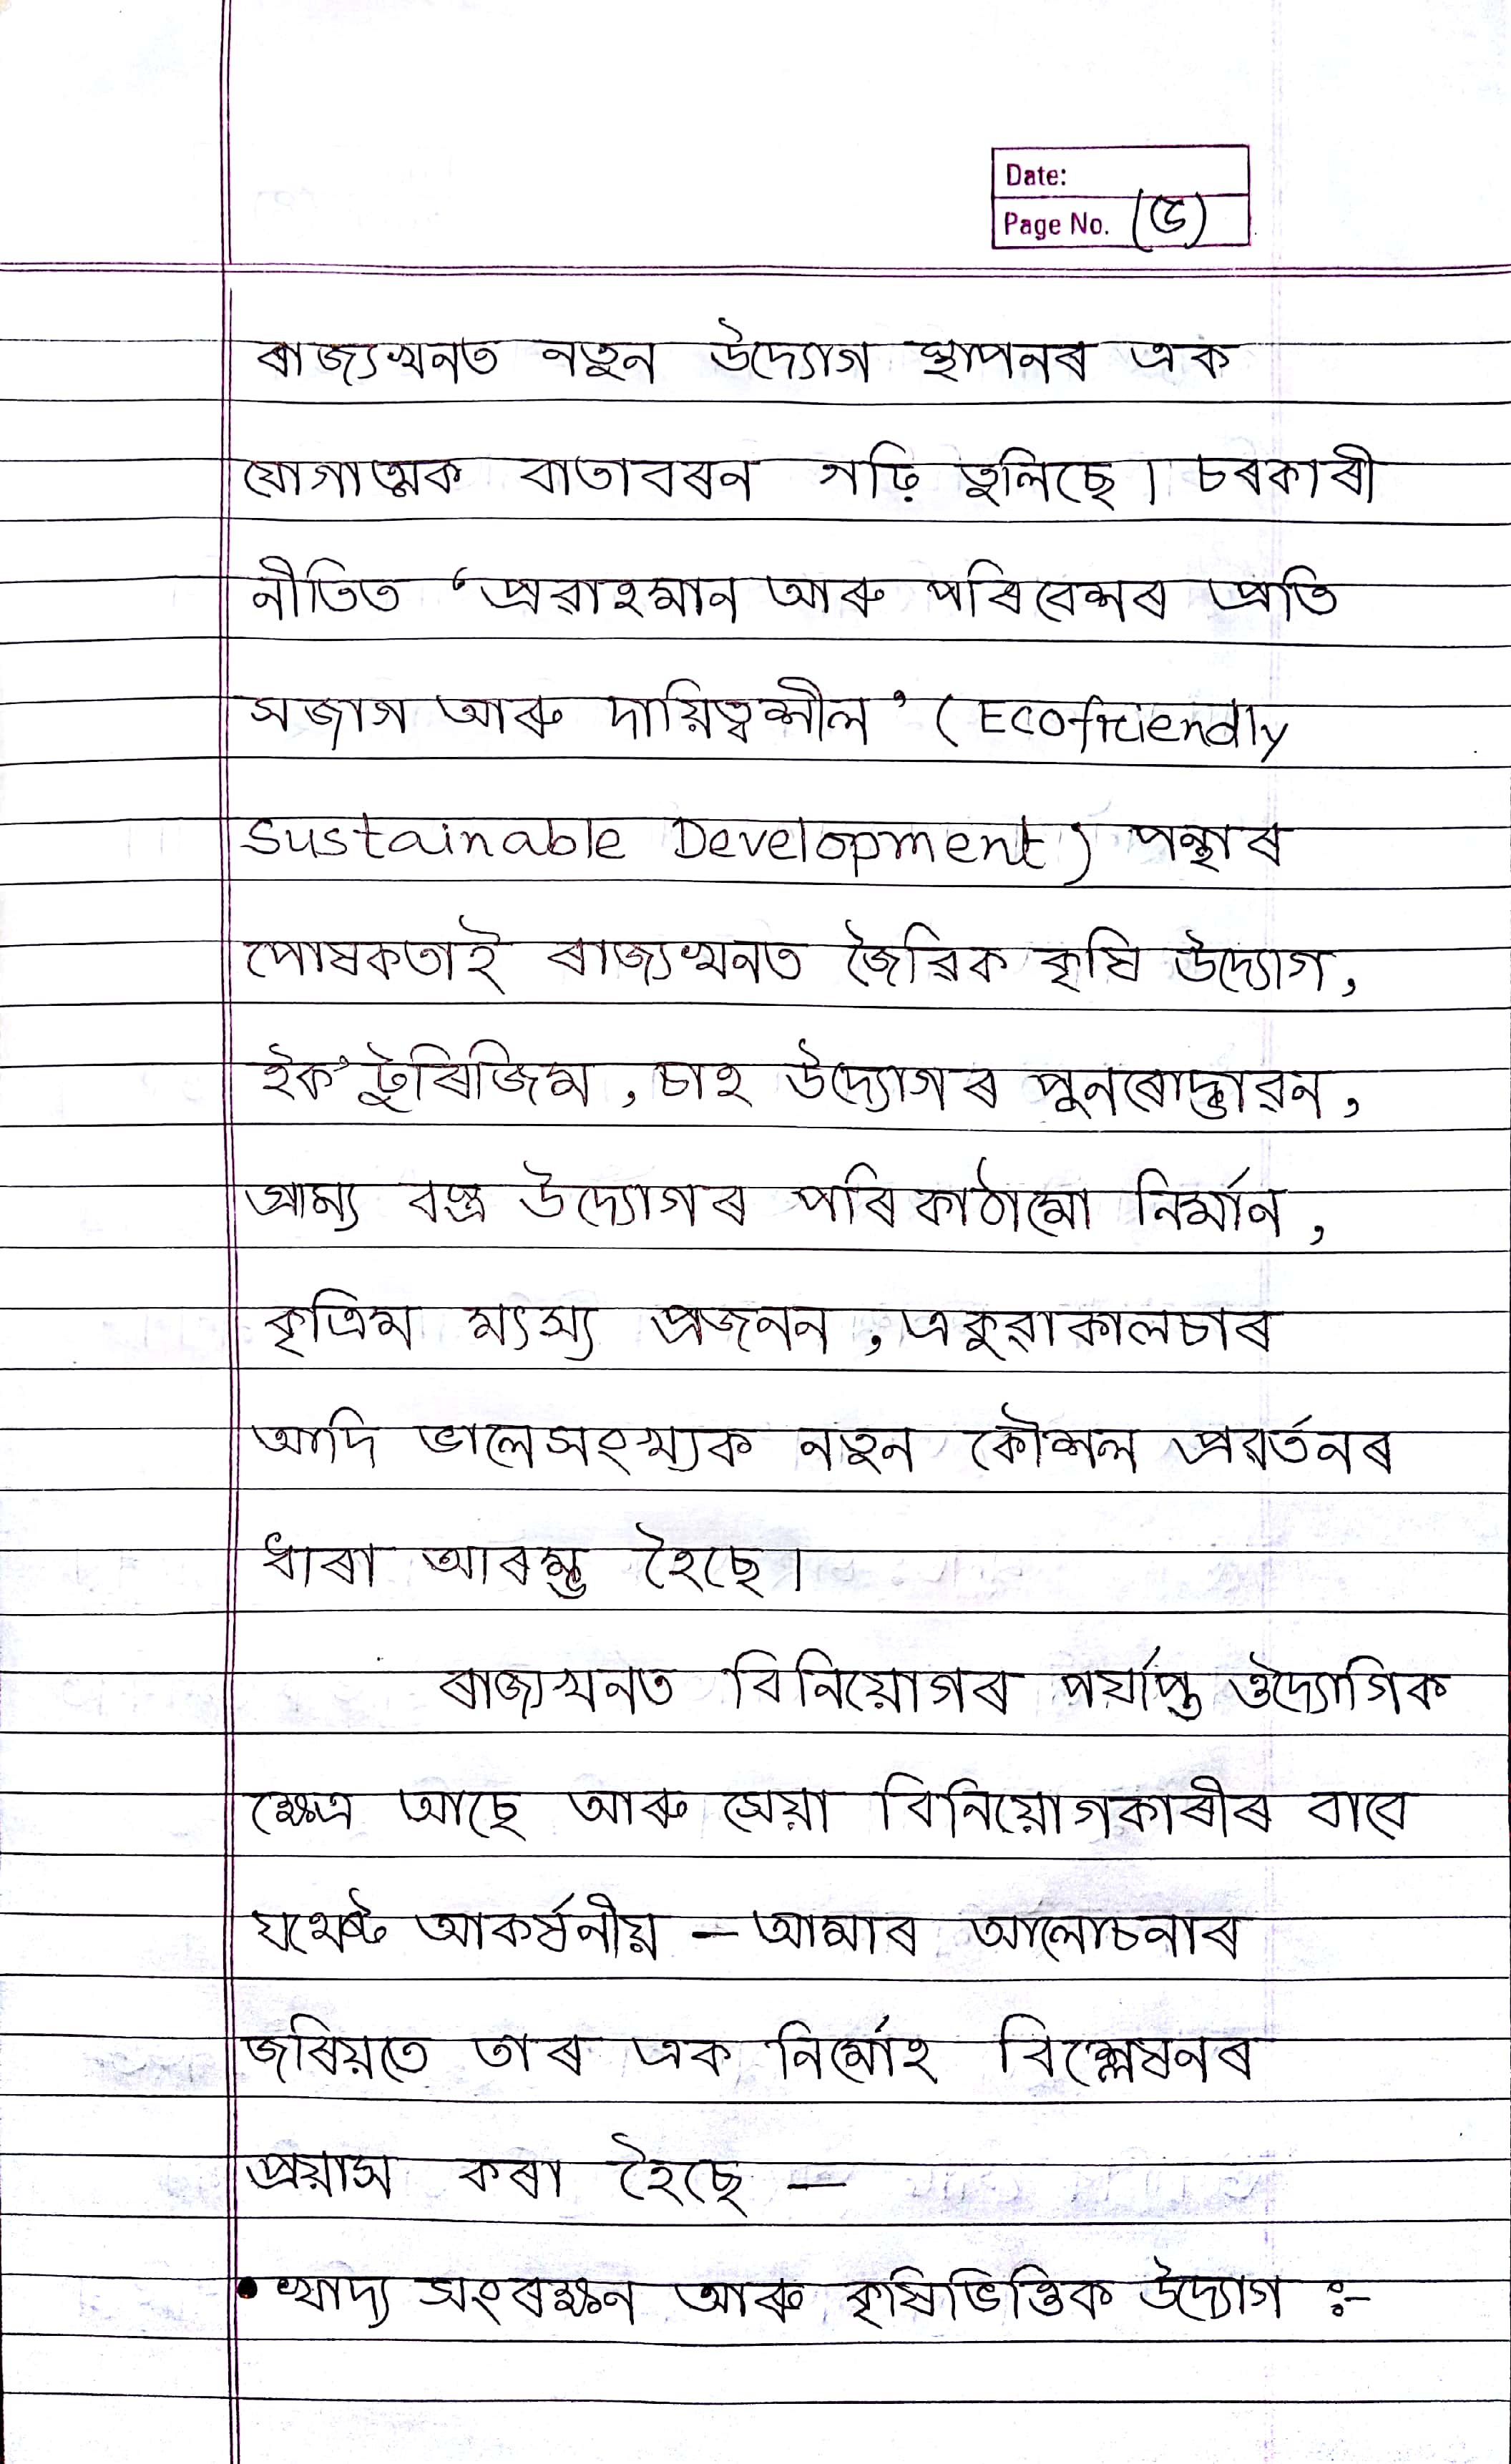 Date:
Page No. (৫)
ৰাজ্যখনত নতুন উদ্যোগ স্থাপনৰ এক
যোগাত্মক বাতাবৰন গঢ়ি তুলিছে। চৰকাৰী
নীতিত ‘প্ৰৱাহমান আৰু পৰিবেশৰ প্ৰতি
সজাগ আৰু দায়িত্বশীল’ (Ecofriendly
Sustainable Development) পন্থাৰ
পোষকতাই ৰাজ্যখনত জৈৱিক কৃষি উদ্যোগ,
ইক’টুৰিজিম, চাহ উদ্যোগৰ পুনৰোদ্ভাৱন,
গ্ৰাম্য বস্ত্ৰ উদ্যোগৰ পৰিকাঠামো নিৰ্মান,
কৃত্ৰিম মৎস্য প্ৰজনন, একুৱাকালচাৰ
আদি ভালেসংখ্যক নতুন কৌশল প্ৰৱৰ্তনৰ
ধাৰা আৰম্ভ হৈছে।
ৰাজ্যখনত বিনিয়োগৰ পৰ্যাপ্ত ঔদ্যোগিক
ক্ষেত্ৰ আছে আৰু সেয়া বিনিয়োগকাৰীৰ বাবে
যথেষ্ট আকৰ্ষনীয় – আমাৰ আলোচনাৰ
জৰিয়তে তাৰ এক নিৰ্মোহ বিশ্লেষনৰ
প্ৰয়াস কৰা হৈছে —
• খাদ্য সংৰক্ষন আৰু কৃষিভিত্তিক উদ্যোগ ঃ-